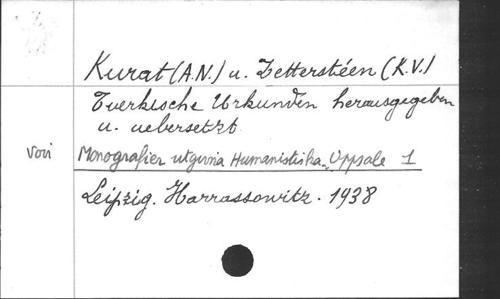 Kurat (A.N.) u. Zetterstéen (K.V.)
Tuerkische Urkunden herausgegeben
u. uebersetzt
voir Monografier utgivna Humanistiska. Uppsale 1
Leipzig. Harrassowitz. 1938